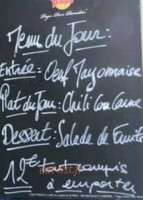 Menu du Jour:
Entrée: Oeuf Mayonnaise
Plat du Jour: Chili Con Carne
Dessert: Salade de Fruits
12€ tout compris
à emporter